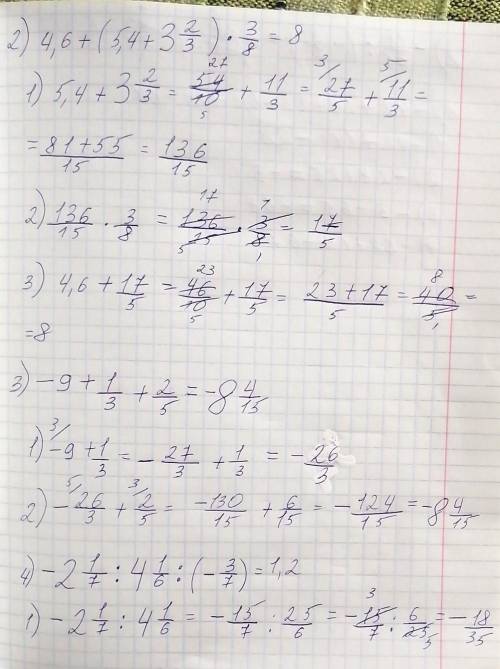 2) 4,6 + (5,4 + 3 2/3) · 3/8 = 8
1) 5,4 + 3 2/3 = 54/10 + 11/3 = 27/5 + 11/3 =
= 81+55/15 = 136/15
2) 136/15 · 3/8 = 136/15 · 3/8 = 17/5
3) 4,6 + 17/5 = 46/10 + 17/5 = 23+17/5 = 40/5 =
= 8
3) -9 + 1/3 + 2/5 = -8 4/15
1) -9 + 1/3 = -27/3 + 1/3 = -26/3
2) -26/3 + 2/5 = -130/15 + 6/15 = -124/15 = -8 4/15
4) -2 1/7 : 4 1/6 : (-3/7) = 1,2
1) -2 1/7 : 4 1/6 = -15/7 : 25/6 = -15/7 : 6/25 = -18/35